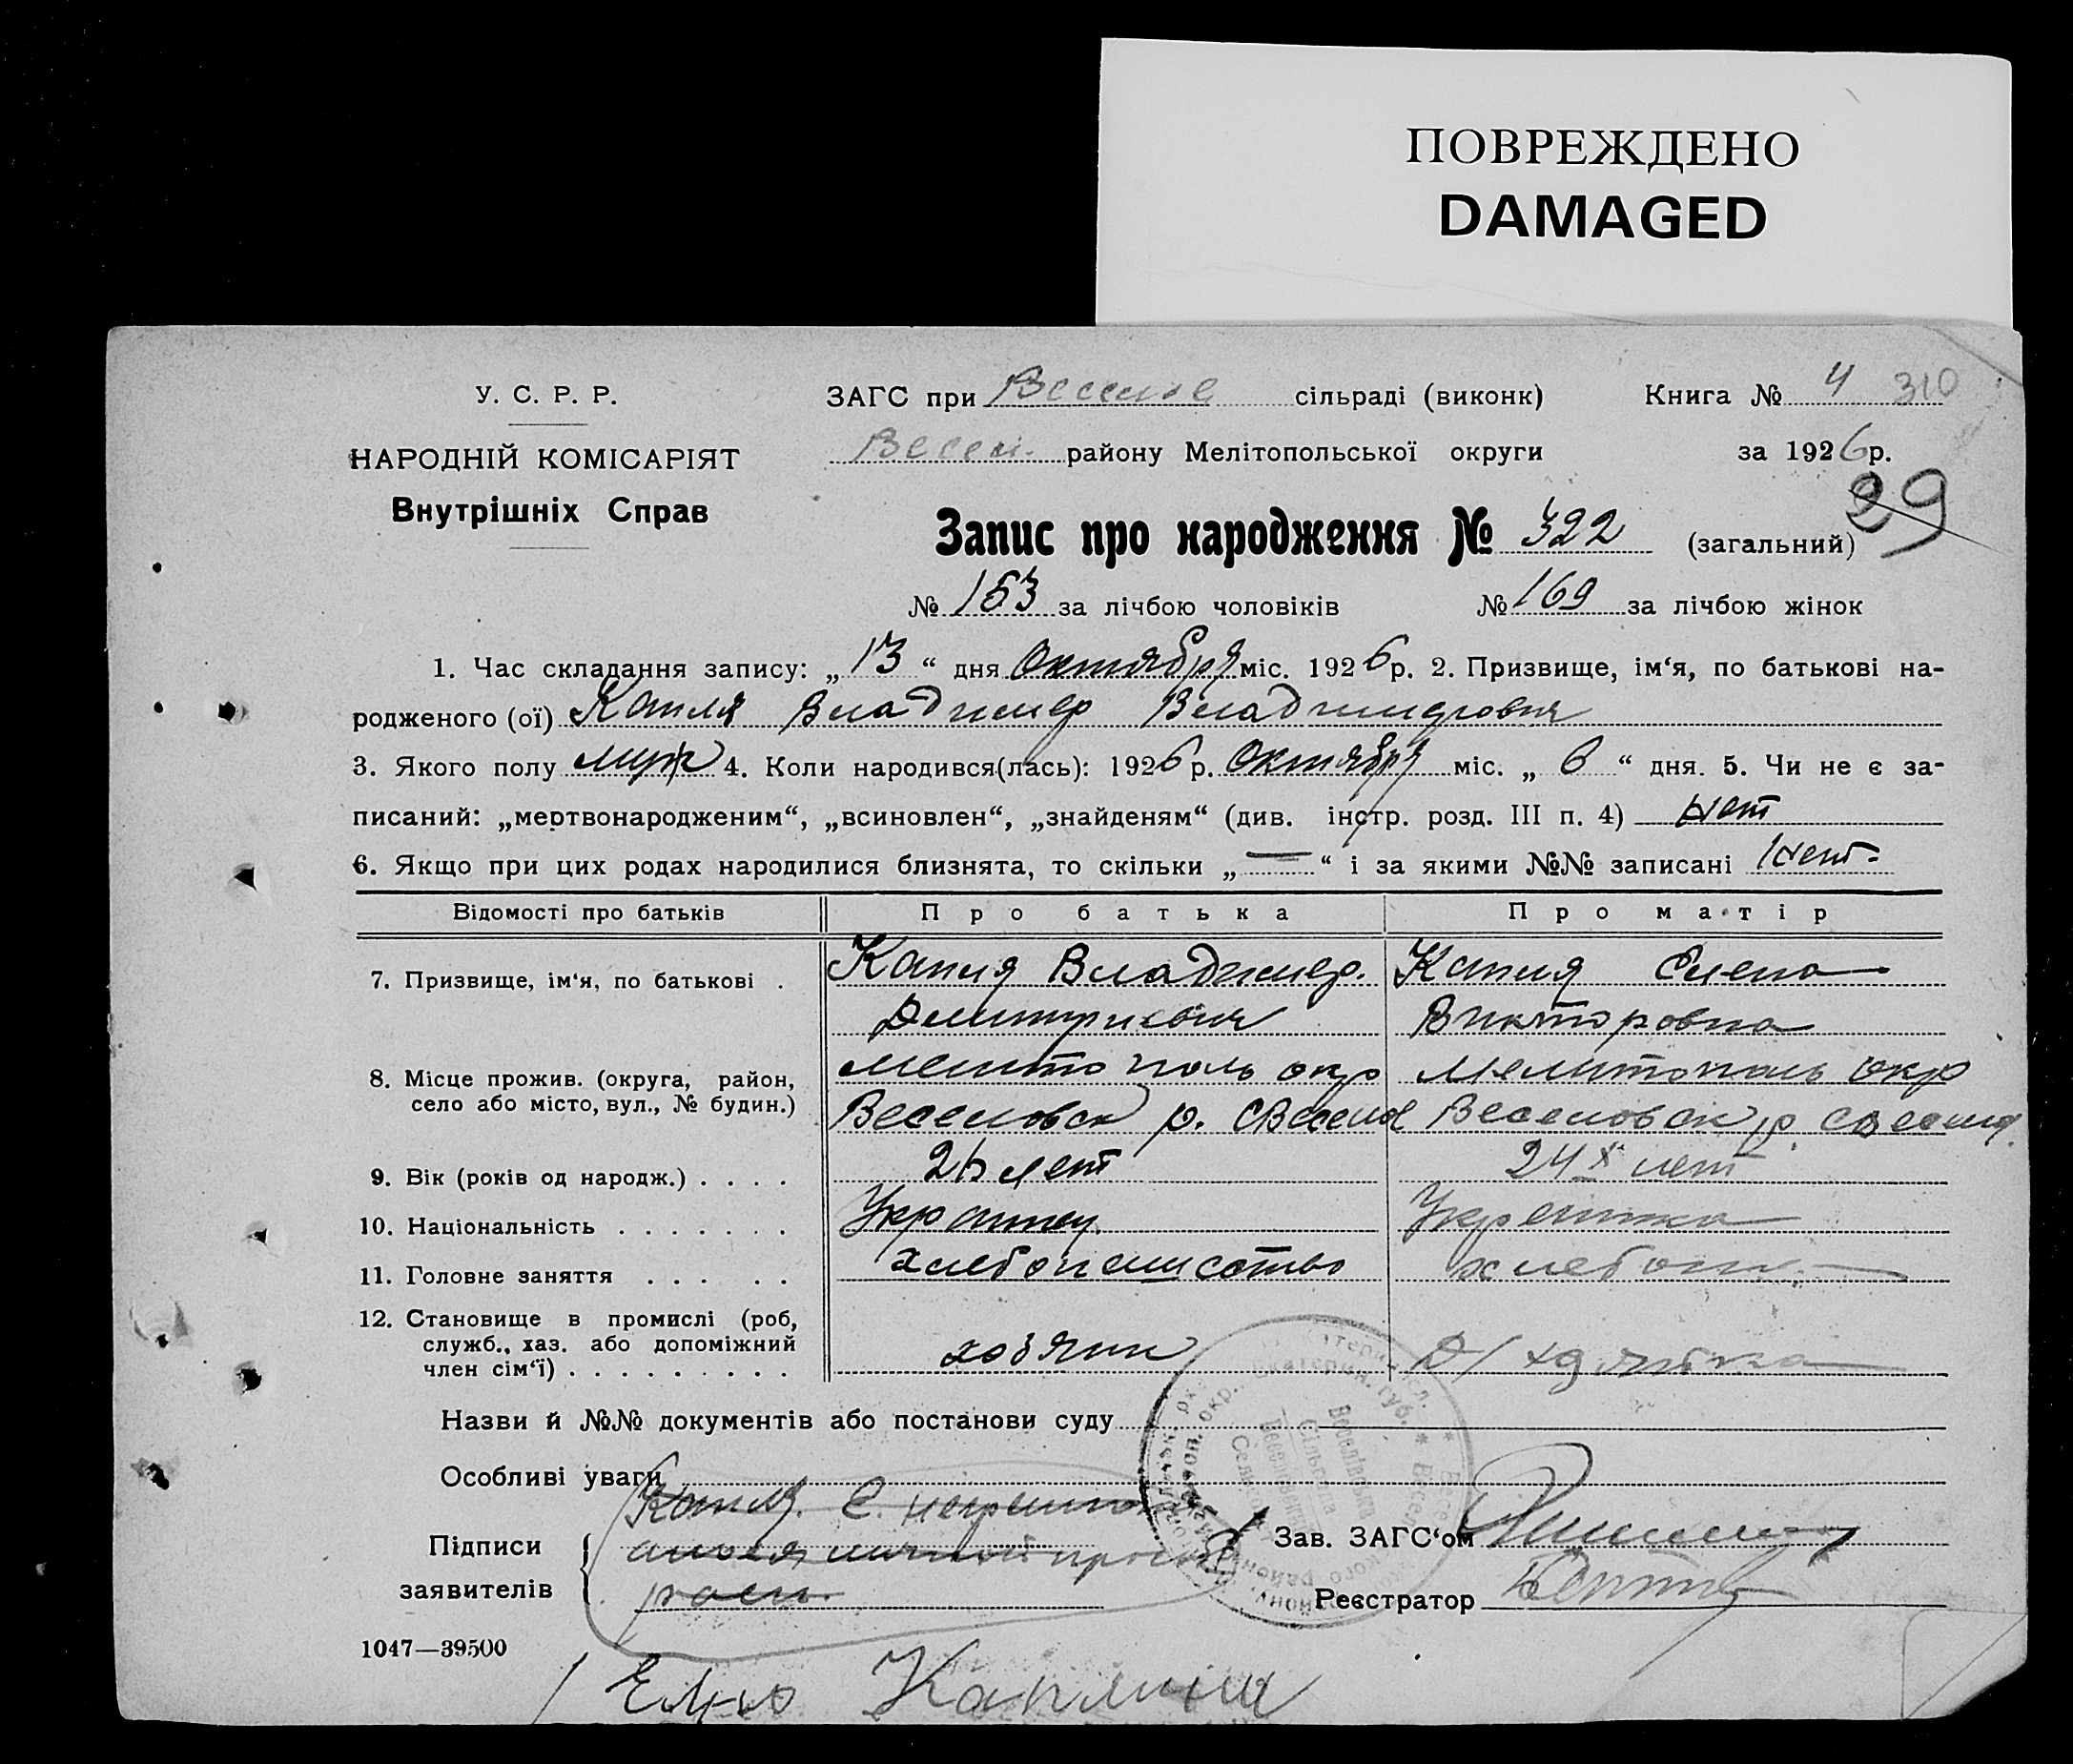 ПОВРЕЖДЕНО
DAMAGED
У. С. Р. Р.
НАРОДНІЙ КОМІСАРІЯТ
Внутрішніх Справ
ЗАГС при Веселое сільраді (виконк)
Весел. району Мелітопольської округи
Книга № 4 310
за 1926 р.
29
Запис про народження № 322 (загальний)
№ 153 за лічбою чоловіків № 169 за лічбою жінок
1. Час складання запису: „ 13 “ дня Октября міс. 1926 р. 2. Призвище, ім‘я, по батькові на-
родженого (ої) Капля Владимер Владимерович
3. Якого полу муж 4. Коли народився(лась): 1926 р. Октября міс. „ 6 “ дня. 5. Чи не є за-
писаний: „мертвонародженим“, „всиновлен“, „знайденям“ (див. інстр. розд. III п. 4) нет
6. Якщо при цих родах народилися близнята, то скільки „ — “ і за якими №№ записані нет.
Відомості про батьків Про батька Про матір
7. Призвище, ім‘я, по батькові . Капля Владимер. Капля Елена
Дмитриевич Викторовна
8. Місце прожив. (округа, район, село або місто, вул., № будин.) Мелитополь окр Мелитополь окр
Веселовск р. с Весело Веселовск р. с Весело
9. Вік (років од народж.) . . . . 26 лет 24 х лет
10. Національність . . . . . . . Украинец Украинка
11. Головне заняття . . . . . хлебопашество хлебопаш.
12. Становище в промислі (роб,
служб., хаз. або допоміжний
член сім‘ї) . . . . . . . . . хозяин Д/хозяйка
Назви й №№ документів або постанови суду
Особливі уваги
Капля. Е. неграмотная
Підписи
заявителів
Зав. ЗАГС‘ом
Реєстратор
1047—39500